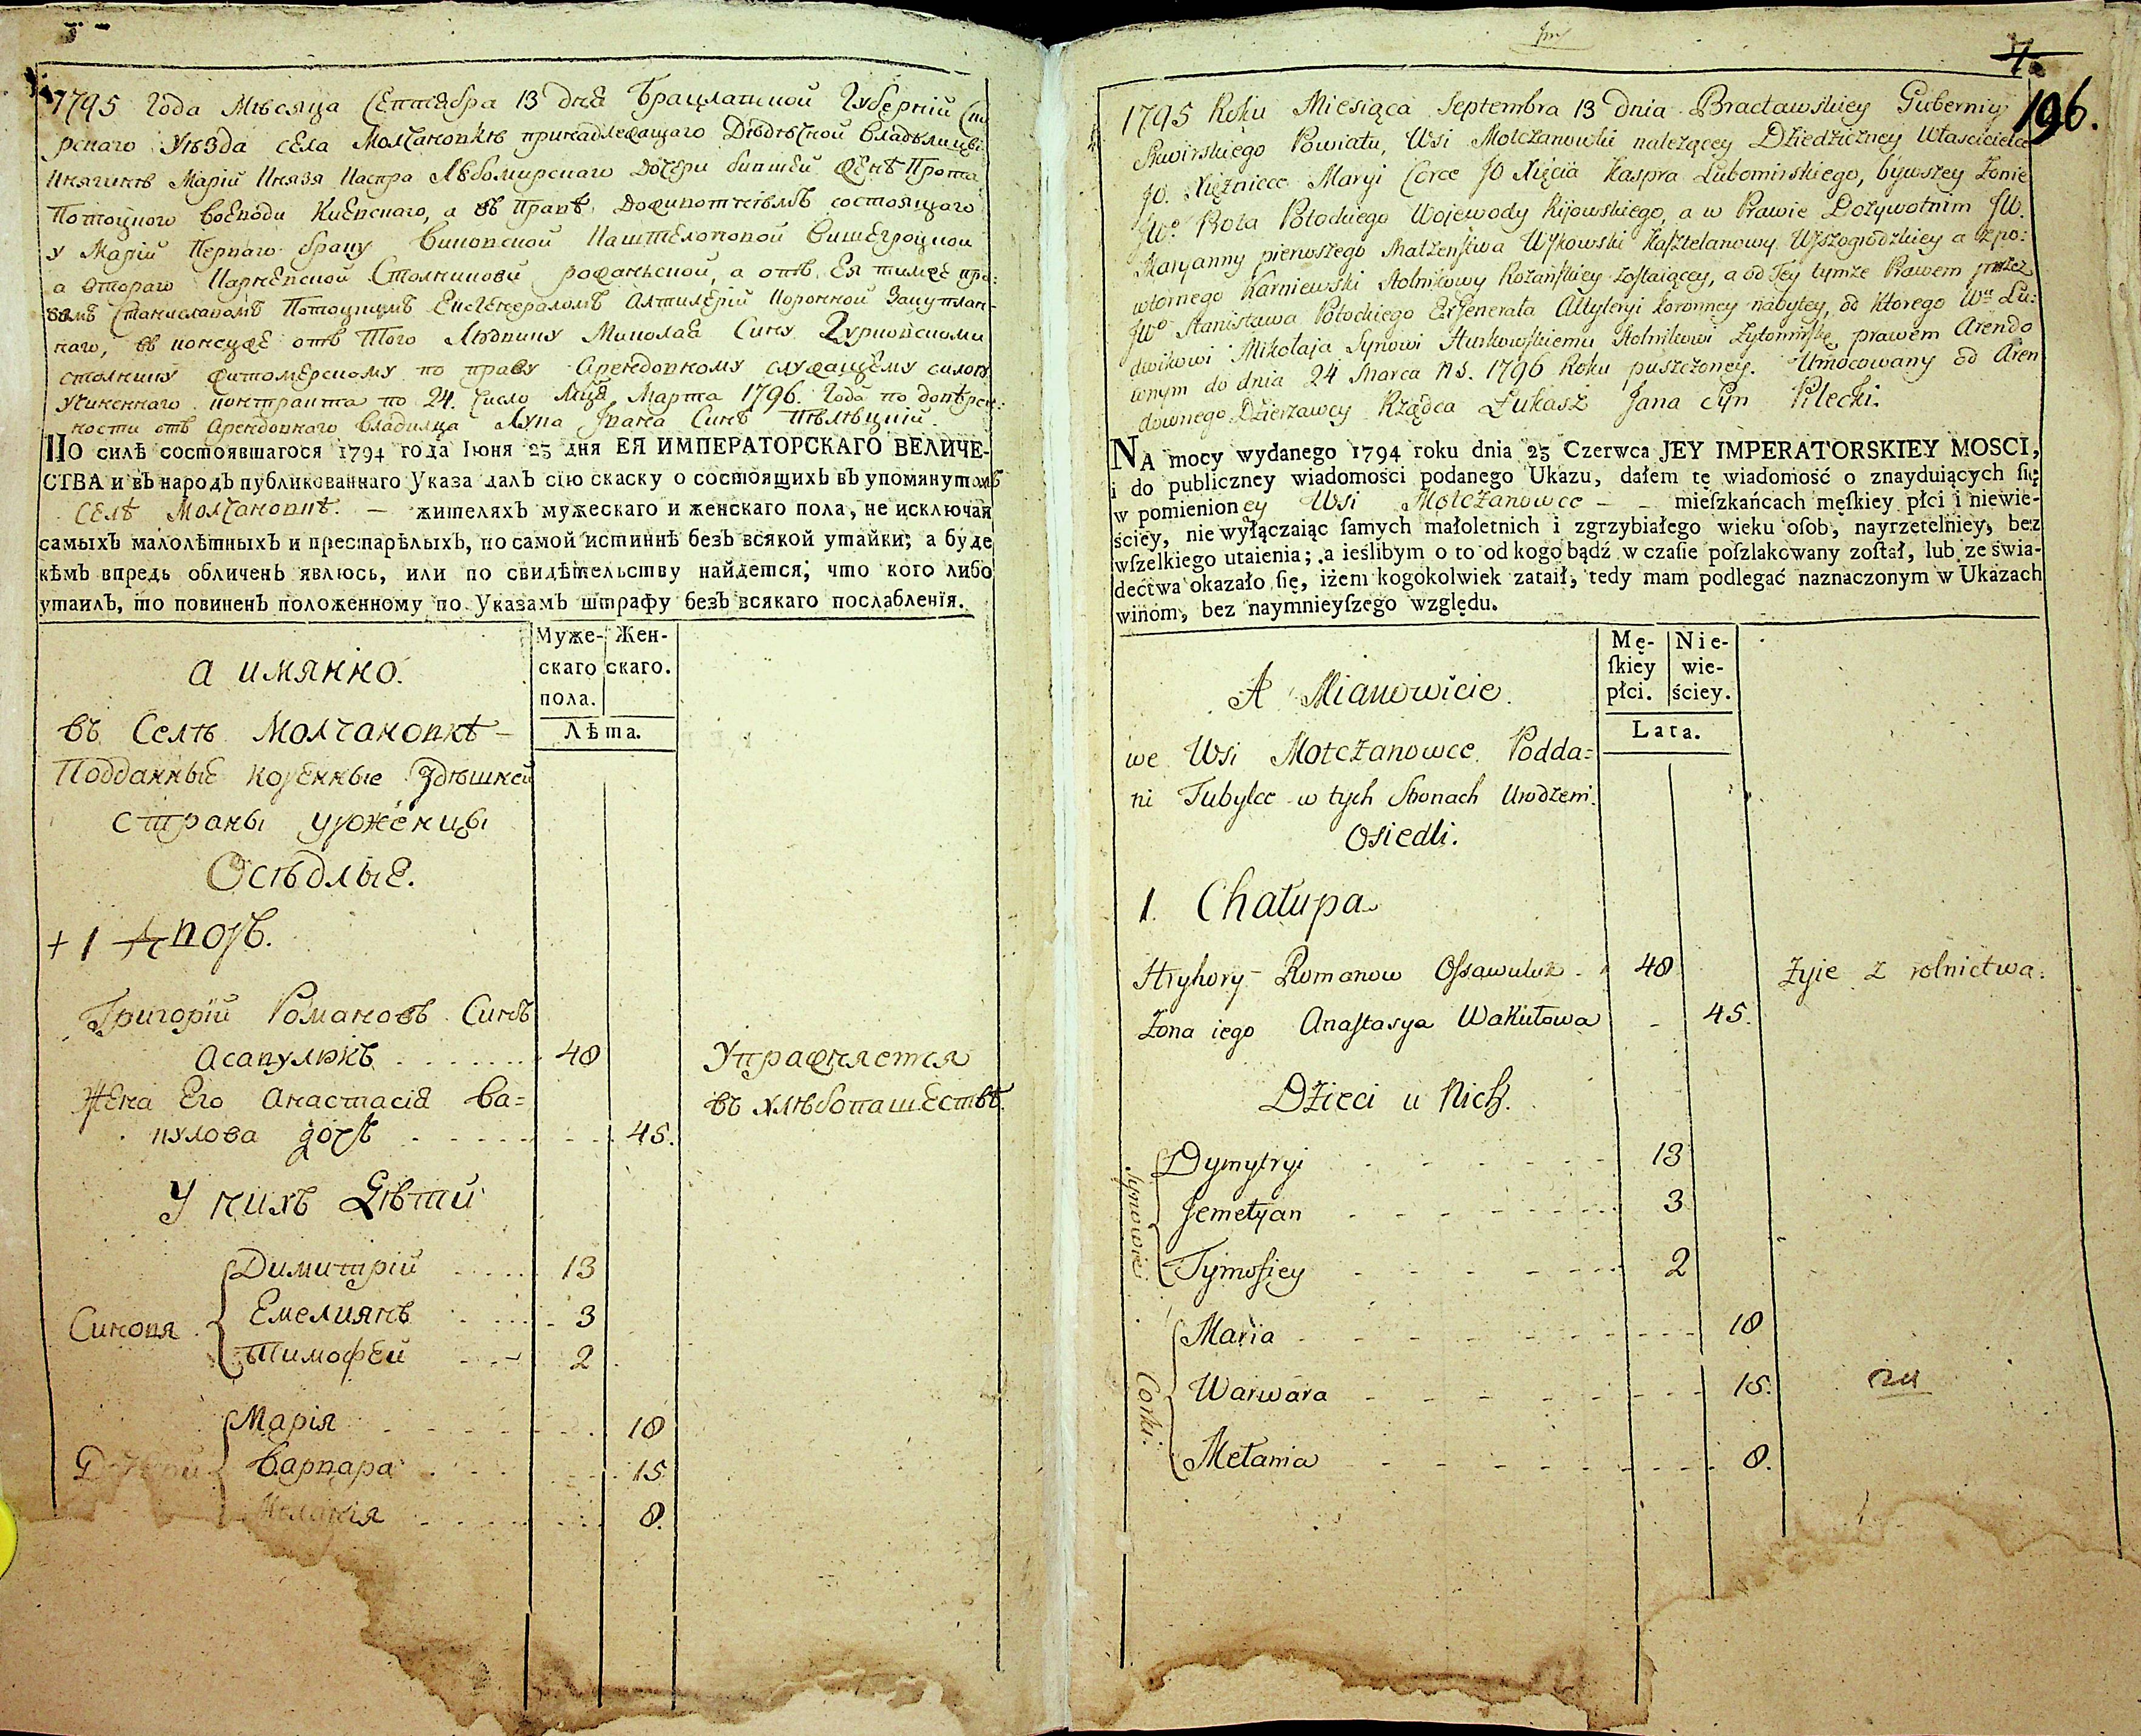 1795 Года Мѣсяца Сентября 13 дня Брацлавской Губернiй
рскаго Уѣзда села Молчановкѣ принадлежащаго Дѣдѣчной Владѣлицы
Княгинѣ Марiй Князя Каспра Любомирскаго Дочери бившей женѣ Прота
Потоцкого воеводи Киевскаго, а въ Правѣ Доживотнѣмъ состоящаго
у Марiй Перваго браку Виковской Каштеляновой Вишегроцкой
а втораго Карневской Столниковй рожанской, а отъ Ея тимже пра:
вамъ Станиславомъ Потоцкимъ Ексгенераломъ Алтилерiй Коронной Закуплан-
наго, въ концже отъ Того Людвику Миколая Сину Гурковскому
столнику житомерскому по праву Арендовному служащему силою
учиненнаго контракта по 24. Число Мца Марта 1796. Года по довѣрен:
ности отъ Арендовнаго владилца Лука Ивана Синъ Пѣлѣцкiй.
ПО силѣ состоявшагося 1794 года Iюня 23 дня ЕЯ ИМПЕРАТОРСКАГО ВЕЛИЧЕ-
СТВА и въ народъ публикованнаго Указа далъ сiю скаску о состоящихъ въ упомянутомъ
Селѣ Молчановкѣ. — жителяхъ мужескаго и женскаго пола, не исключая
самыхъ малолѣтныхъ и престарѣлыхъ, по самой истиннѣ безъ всякой утайки; а буде
кѣмъ впредь обличенъ явлюсь, или по свидѣтельству найдется, что кого либо
утаилъ, то повиненъ положенному по Указамъ штрафу безъ всякаго послабленiя.
Муже- Жен-
скаго скаго.
пола.
Лѣта.
а имянно.
въ Селѣ Молчановкѣ –
Подданные коренные здѣшней
страны уроженцы
Осѣдлые.
+ 1 Дворъ.
Григорiй Романовъ Синъ
Асавулюкъ 48 Упражняется
Жена Его Анастасiя Ва= въ хлѣбопашествѣ.
кулова дочь 45.
У нихъ Дѣти
Димитрiй 13
Синовя Емелиянъ 3
Тимофей 2
Марiя 18
Дочери Варвара 15
Меланiя 8.
7.
196.
1795 Roku Miesiąca Septembra 13 dnia Bracławskiey Guberniy
Skwirskiego Powiatu, Wsi Mołczanowki należącey Dziedziczney Właścicielce
JO. Xiężniece Maryi Corce JO Xięcia Kaspra Lubomirskiego, bywszey Żonie
JWo Prota Potockiego Wojewody Kijowskiego, a w Prawie Dożywotnim JW.
Maryanny pierwszego Małżeństwa Wykowski Kasztelanowy Wyszogrodzkiey a z po:
wtornego Karniewski Stolnikowy Rożańskiey zostaiącey, a od Jey tymże Prawem przez
JWo Stanisława Potockiego ExGenerała Altyleryi Koronney nabytey, od ktorego Wu Lu:
dwikowi Mikołaja Synowi Hurkowskiemu Stolnikowi Żytomirskie, prawem Arendo
wnym do dnia 24 Marca n.s. 1796 Roku puszczoney. Umocowany od Aren
downego Dzierżawcy Rządca Łukasz Jana Syn Pilecki.
NA mocy wydanego 1794 roku dnia 23 Czerwca JEY IMPERATORSKIEY MOSCI,
i do publiczney wiadomości podanego Ukazu, dałem tę wiadomość o znayduiących ſię
w pomienioney Wsi Mołczanowce — mieſzkańcach męſkiey płci i niewie-
ściey, nie wyłączaiąc ſamych małoletnich i zgrzybiałego wieku oſob, nayrzetelniey, bez
wſzelkiego utaienia; a ieślibym o to od kogo bądź w czaſie poſzlakowany zoſtał, lub ze świa-
dectwa okazało ſię, iżem kogokolwiek zataił, tedy mam podlegać naznaczonym w Ukazach
winom, bez naymnieyſzego względu.
Mę- Nie-
ſkiey wie-
płci. ściey.
Lata.
A Mianowicie.
we Wsi Mołczanowce Podda=
ni Tubylce w tych Stronach Urodzeni.
Osiedli.
1. Chałupa
Hryhory Romanow Ossawuluk 48 Żyie z rolnictwa.
Żona iego Anastasya Wakułowa 45.
Dzieci u Nich.
Synowie Dymytryi 13
Jemełyan 3
Tymofiey 2
Corki. Maria 18
Warwara 15.
Mełania 8.